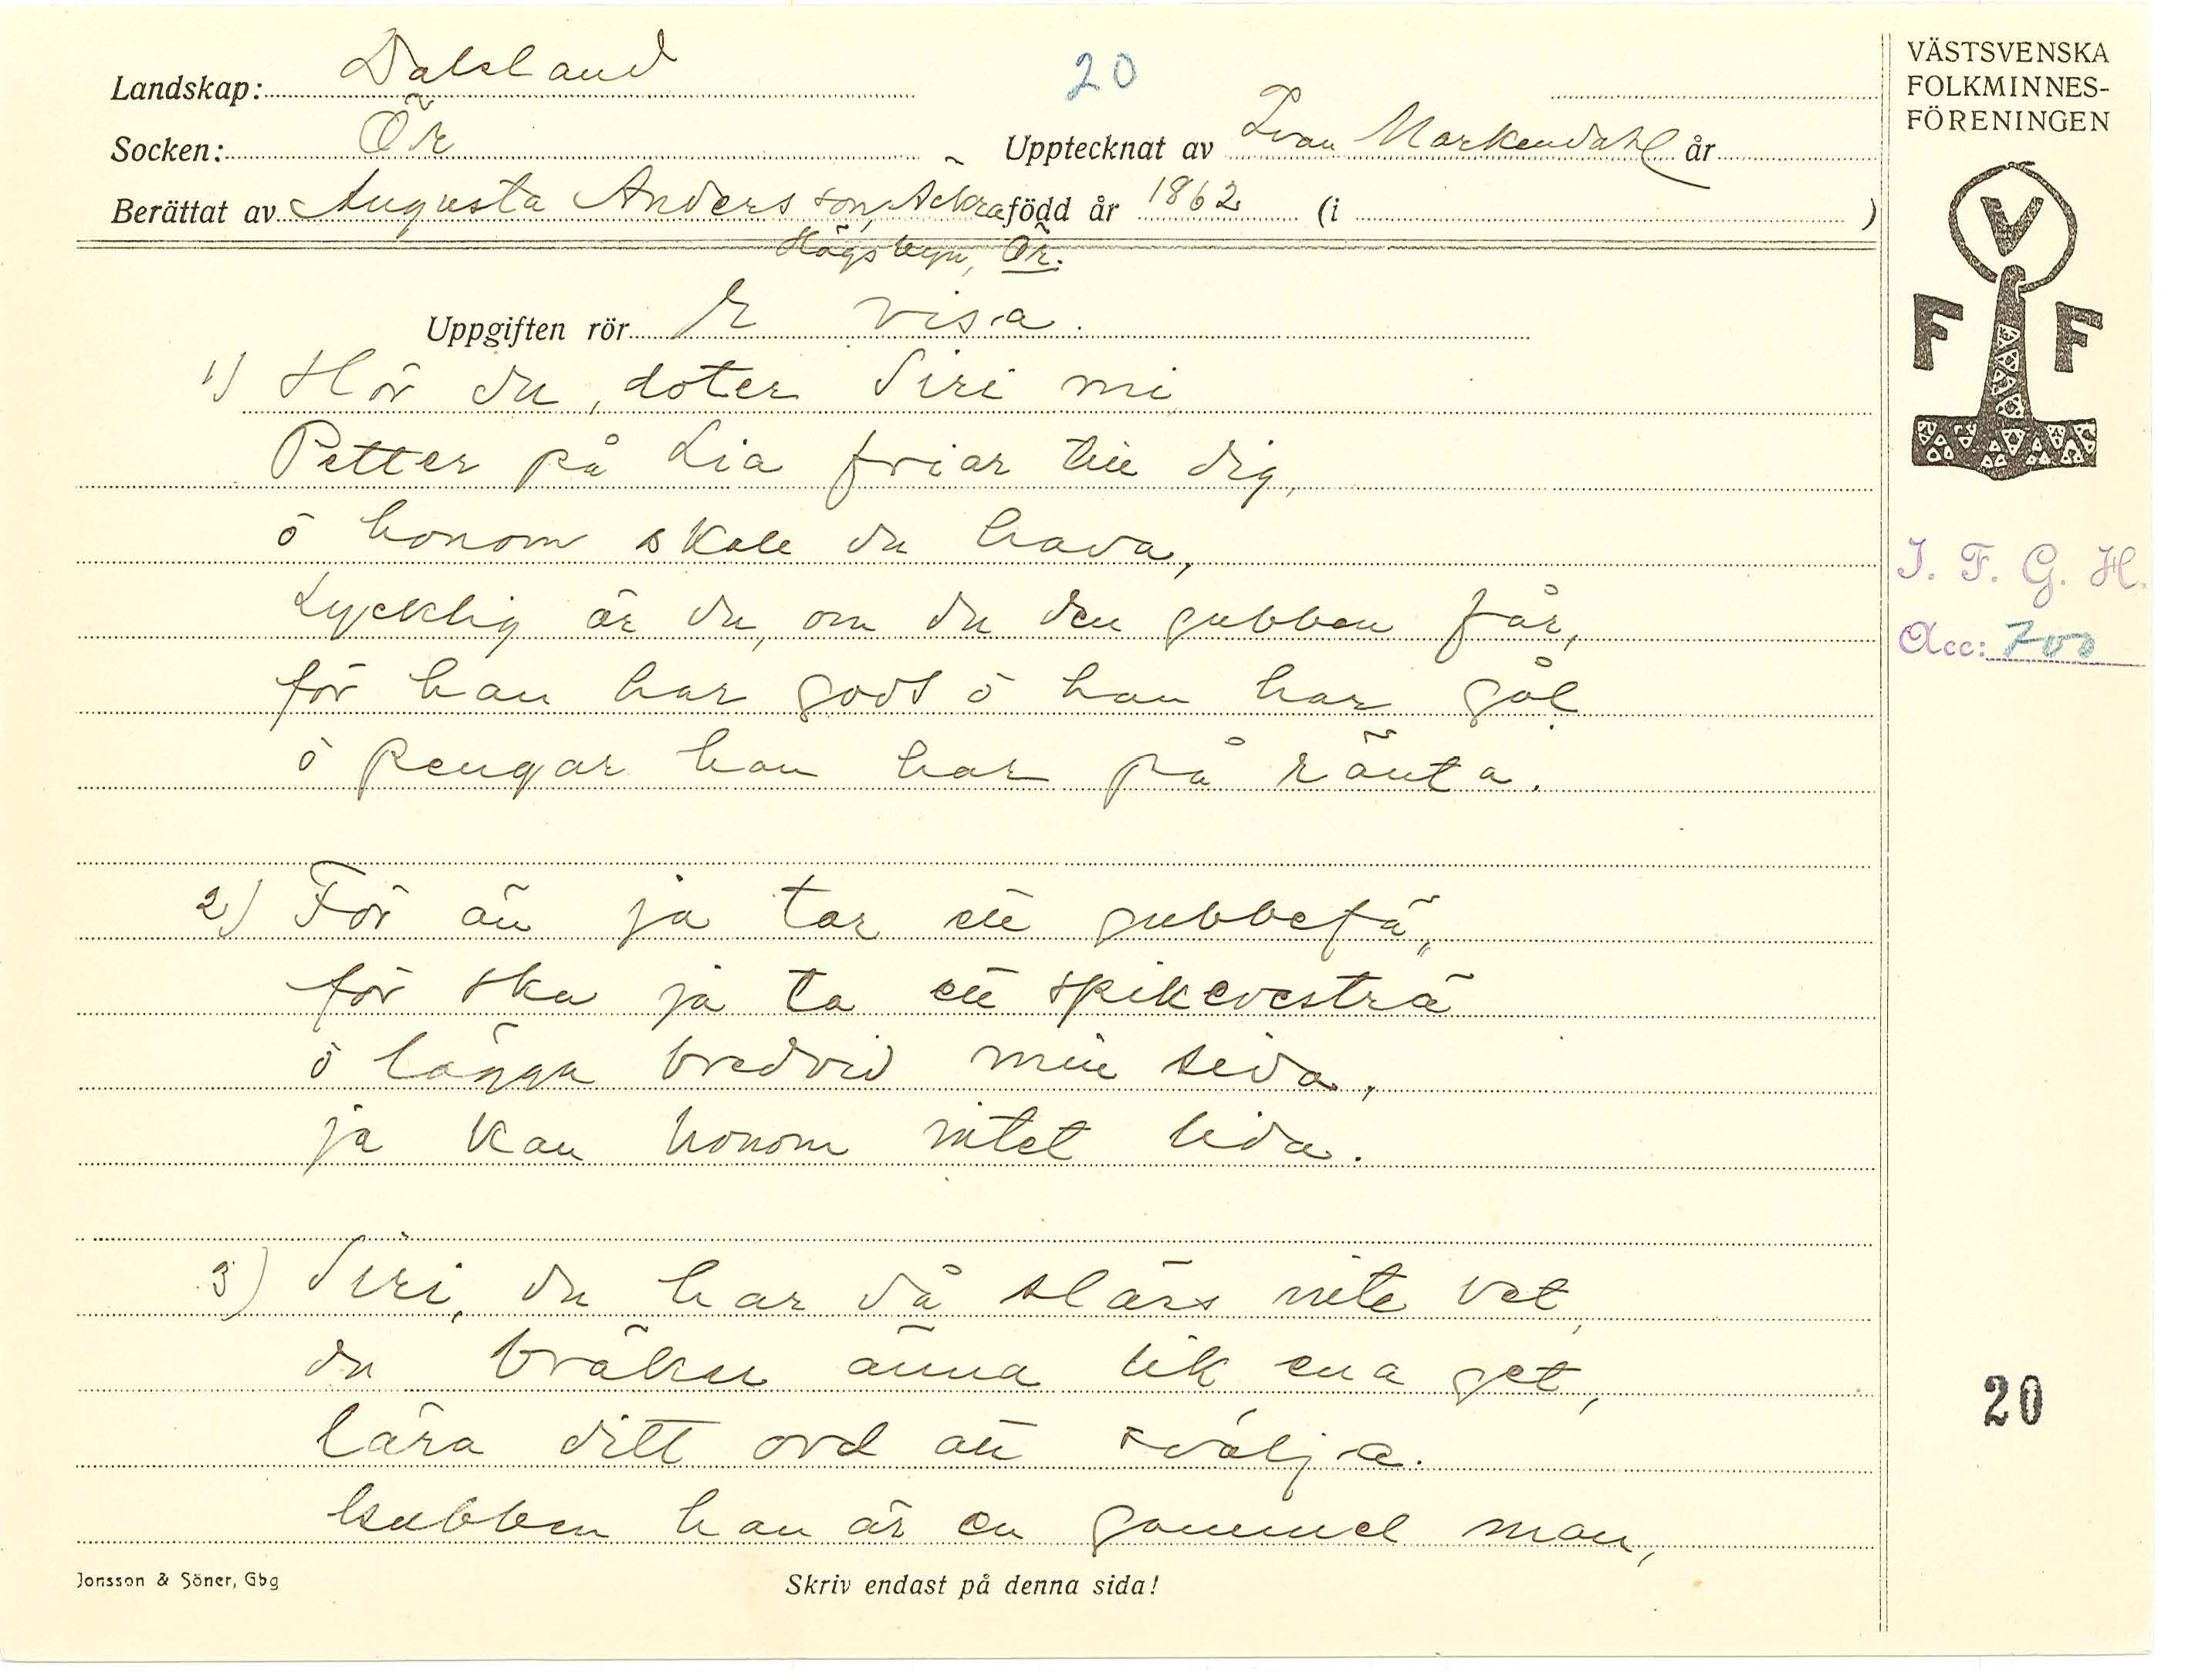 Landskap: Dalsland
20
VÄSTSVENSKA
FOLKMINNES-
FÖRENINGEN
Socken: Ör
Upptecknat av Ivan Markendahl år
Berättat av Augusta Andersson, Ackra född år 1862 (i )
Högsbyn, Ör.
Uppgiften rör E visa.
V
F F
1) Hör du, doter Siri mi
Petter på Lia friar till dig,
ö honom skall du hava,
Lycklig är du, om du den gubben får,
för han har gods ö han har gål
ö pengar han har på ränta.
I. F. G. H.
Acc: 700
2) För än ja tar ett gubbefä,
för ska ja ta ett spikevesträ
ö lägga bredvid min sida,
ja kan honom intet lida.
3) Siri, du har då slärs inte vet,
du bräker änna lik ena get,
lära ditt ord att svälja.
Gubben han är en gammel man,
20
Jonsson & Söner, Gbg
Skriv endast på denna sida!